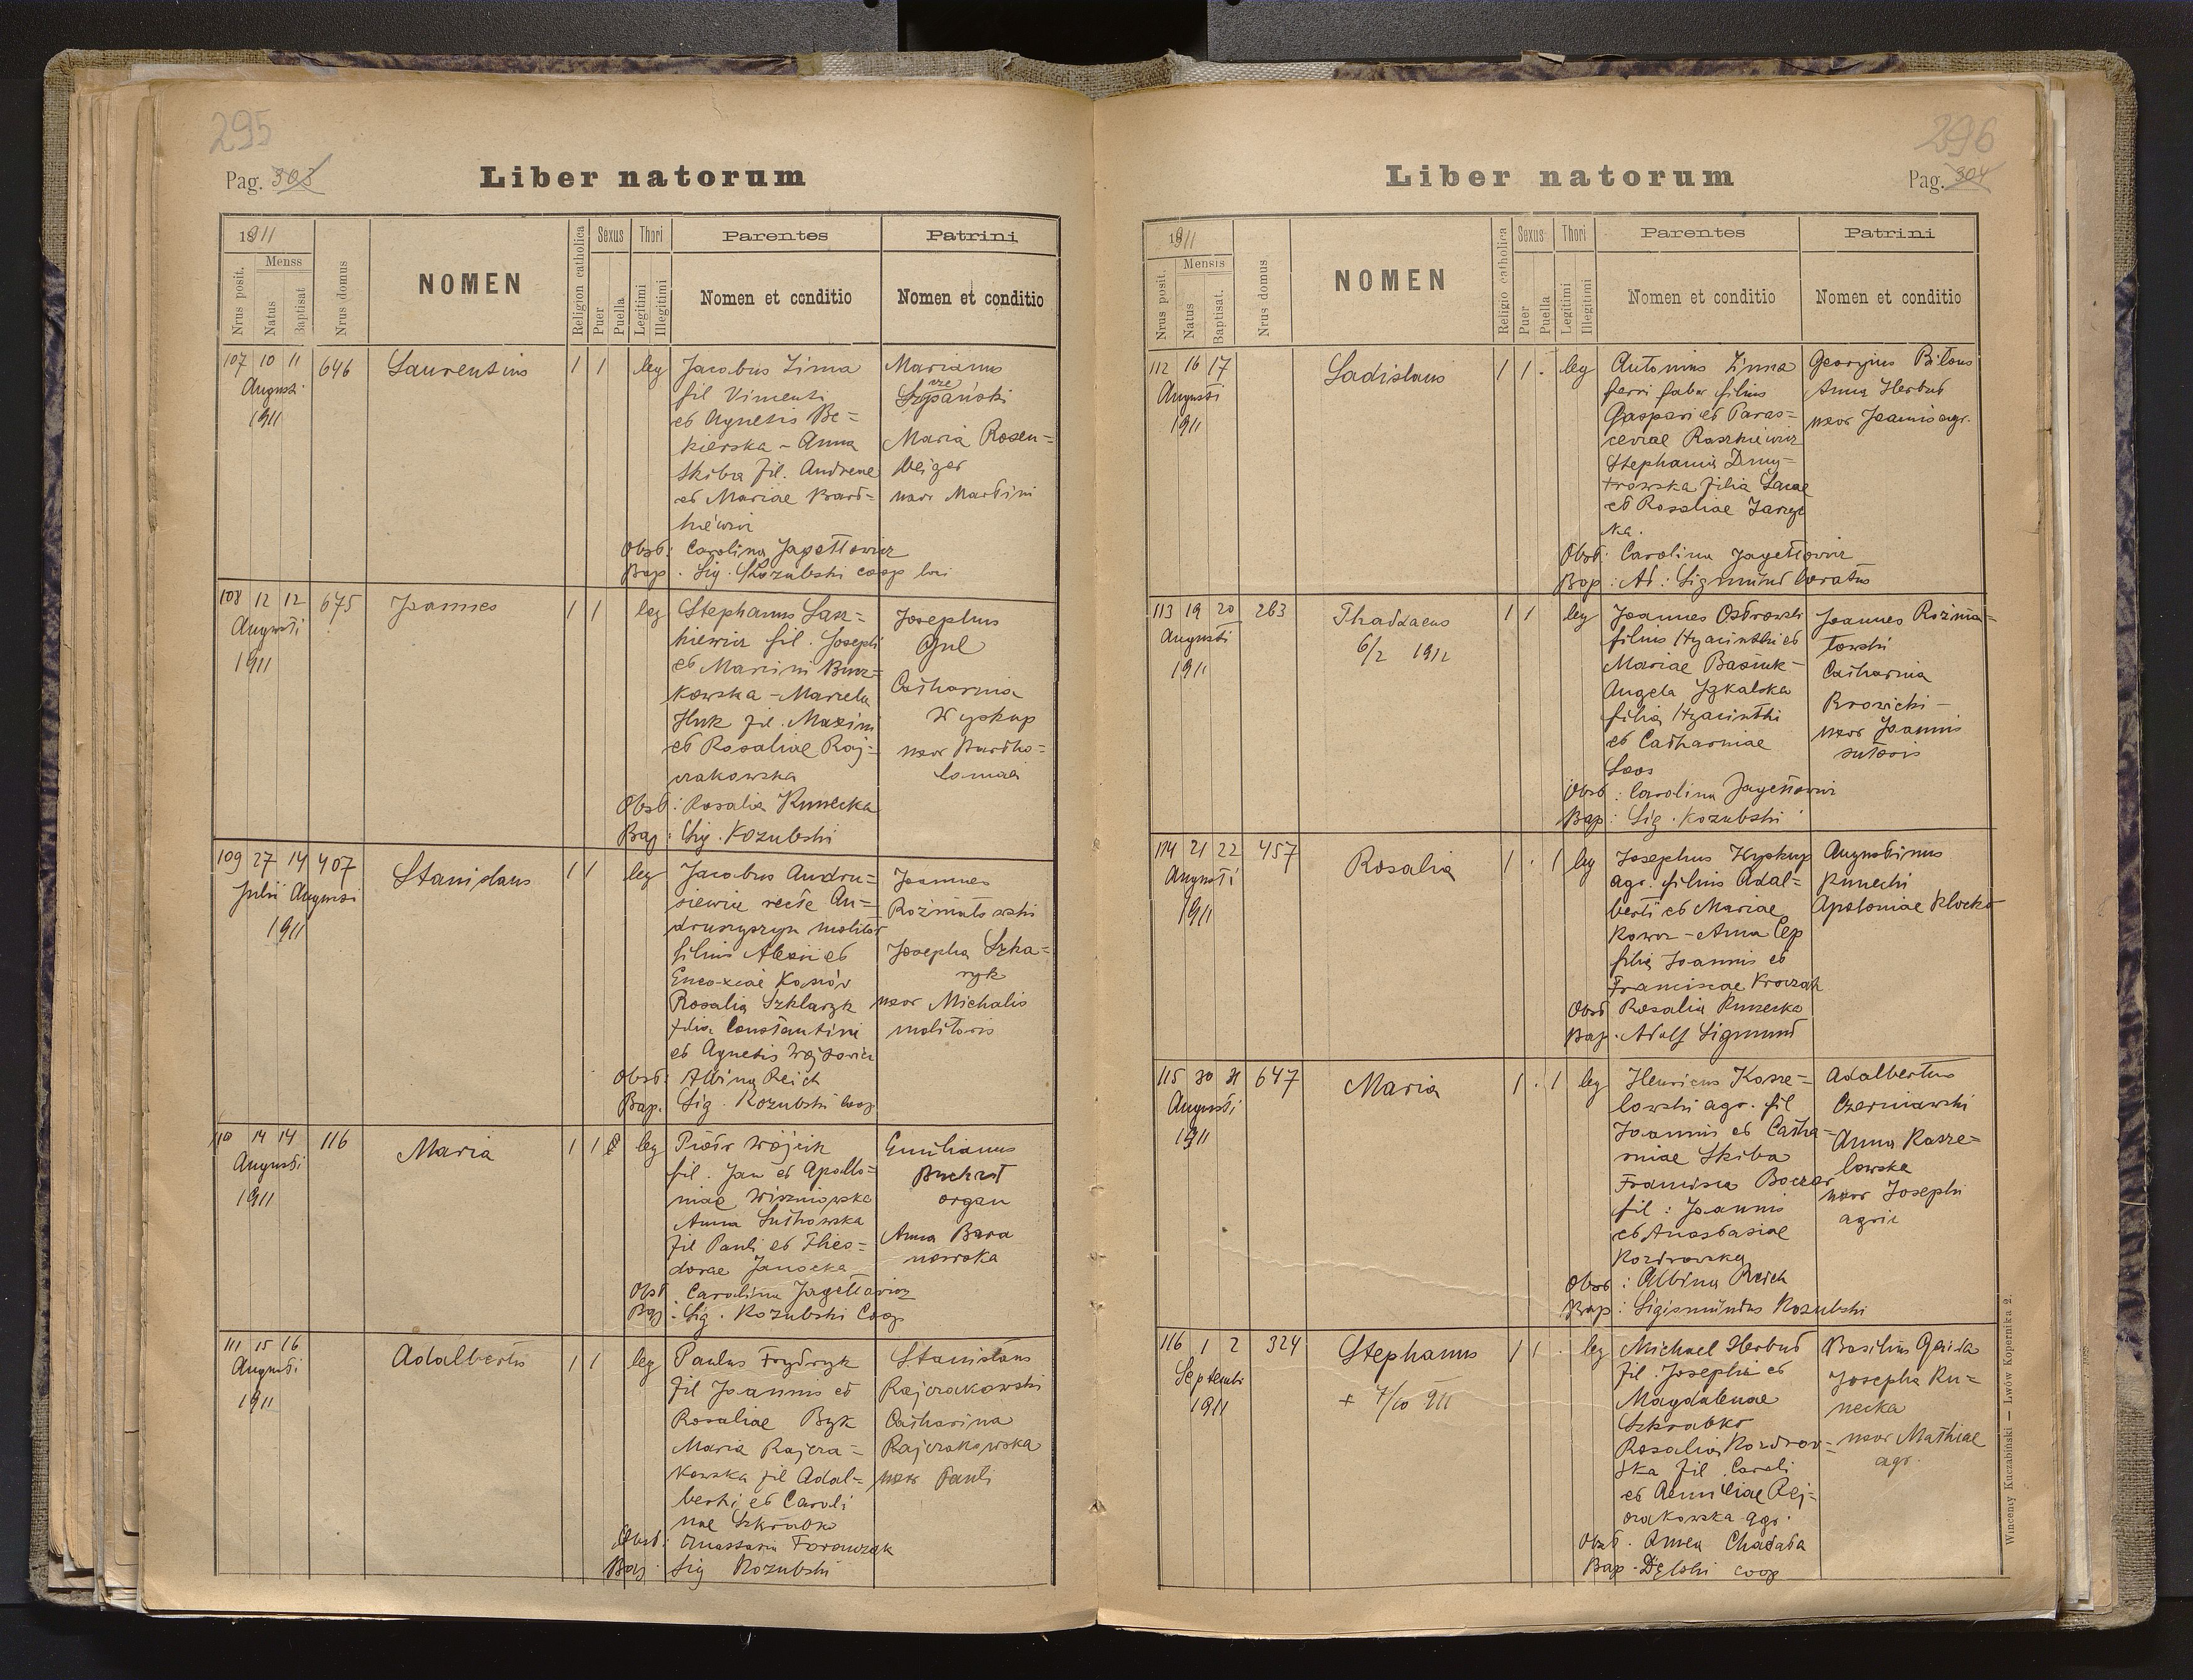 295
Pag. 303
Liber natorum
1911
Menss
Nrus posit.
Natus
Baptisat
Nrus domus
NOMEN
Religion catholica
Sexus
Puer
Puella
Thori
Legitimi
Illegitimi
Parentes
Nomen et conditio
Patrini
Nomen et conditio
107 10 11 646 Laurentius 1 1 leg
Augusti
1911
Jacobus Zima
fil Vincenti
et Agnetis Be=
kierska - Anna
Skiba fil. Andreae
et Mariae Bart=
Marianus
Maria Rosen=
weiger
uxor Martini
Obst: Carolina Jagiełłowicz
Bap. Sig. Kozubski coop loci
108 12 12 675 Joannes 1 1 leg
Augusti
1911
Stephanus Lasz=
kiewicz fil. Josephi
et
kowska - Marcela
Huk fil. Maximi
et Rosaliae Raj=
czakowska
Josephus
Gul
Catharina
Wyskup
uxor Bartho=
lomaei
Obst: Rosalia Kunecka
Bap: Sig. Kozubski
109 27 14 407 Stanislaus 1 1 leg
Julii Augusti
1911
Jacobus Andru=
siewicz recte An=
druszyszyn molitor
filius Alexii et
Rosalia Szklaryk
filia Constantini
et Agnetis Wojtowicz
Joannes
Rożniatowski
Josepha Szka=
ryk
uxor Michalis
molitoris
Obst: Albina Reich
Bap. Sig. Kozubski coop
110 14 14 116 Maria 1 1 leg
Augusti
1911
Piotr Wójcik
fil. Jan et Apollo=
niae Wiszniowska
Anna Sutkowska
fil Pauli et Theo=
dorae Janocka
Emilianus
organ
Anna Bara
nowska
Obst. Carolina Jagiełłowicz
Bap: Sig. Kozubski Coop
111 15 16 Adalbertus 1 1 leg
Augusti
1911
Paulus Frydryk
fil Joannis et
Rosaliae Byk
Maria Rajcza=
kowska fil Adal=
berti et Caroli
nae Szkrabko
Stanislaus
Rajczakowski
Catharina
Rajczakowska
uxor Pauli
Obst: Anastasia
Bap. Sig Kozubski
296
Pag. 304
Liber natorum
1911
Mensis
Nrus posit.
Natus
Baptisat.
Nrus domus
NOMEN
Religio catholica
Sexus
Puer
Puella
Thori
Legitimi
Illegitimi
Parentes
Nomen et conditio
Patrini
Nomen et conditio
112 16 17 Ladislaus 1 1 . leg
Augusti
1911
Antonius Zima
ferri faber filius
Gaspari et Paras=
ceviae Raszkiewicz
Stephania Dmy=
trowska filia Lucae
et Rosaliae
Georgius Biłous
Anna Herbut
uxor Joannis agr.
Obst: Carolina Jagiełłowicz
Bap: Ad: Sigmund Curatus
113 19 20 263 Thaddaeus 1 1 leg
Augusti
1911
6/2 1912
Joannes Ostrowski
filius Hyacinthi et
Mariae Basiuk -
Angela Skalska
filia Hyacinthi
et Catharinae
Joannes Rożnia=
towski
Catharina
uxor Joannis
sutoris
Obst: Carolina Jagiełłowicz
Bap: Sig. Kozubski
114 21 22 457 Rosalia 1 . 1 leg
Augusti
1911
Josephus Wyskup
agr. filius Adal=
berti et Mariae
Kowcz - Anna Cep
filia Joannis et
Franciscae Kroczak
Augustinus
Kunecki
Apoloniae Klocko
Obst Rosalia Kunecka
Bap. Adolf Sigmund
115 30 31 647 Maria 1 . 1 leg
Augusti
1911
Henricus Kosze=
lowski agr. fil
Joannis et Catha=
rinae Skiba
Francisca Boczar
fil: Joannis
et Anastasiae
Kozdrowska
Adalbertus
Czerniawski
Anna Kosze=
lowska
uxor Josephi
agric
Obst: Albina Reich
Bap: Sigismundus Kozubski
116 1 2 324 Stephanus 1 1 . leg
Septembr
1911
+ 7/10 911
Michael Herbut
fil. Josephi et
Magdalenae
Szkrabko
Rosalia Kozdrow=
ska fil. Caroli
et Aemiliae Rej=
czakowska agr.
Basilius Gaida
Josepha Ku=
necka
uxor Mathiae
agr.
Obst. Chadata
Bap. coop
Wincenty Kuczabiński — Lwów Kopernika 2.